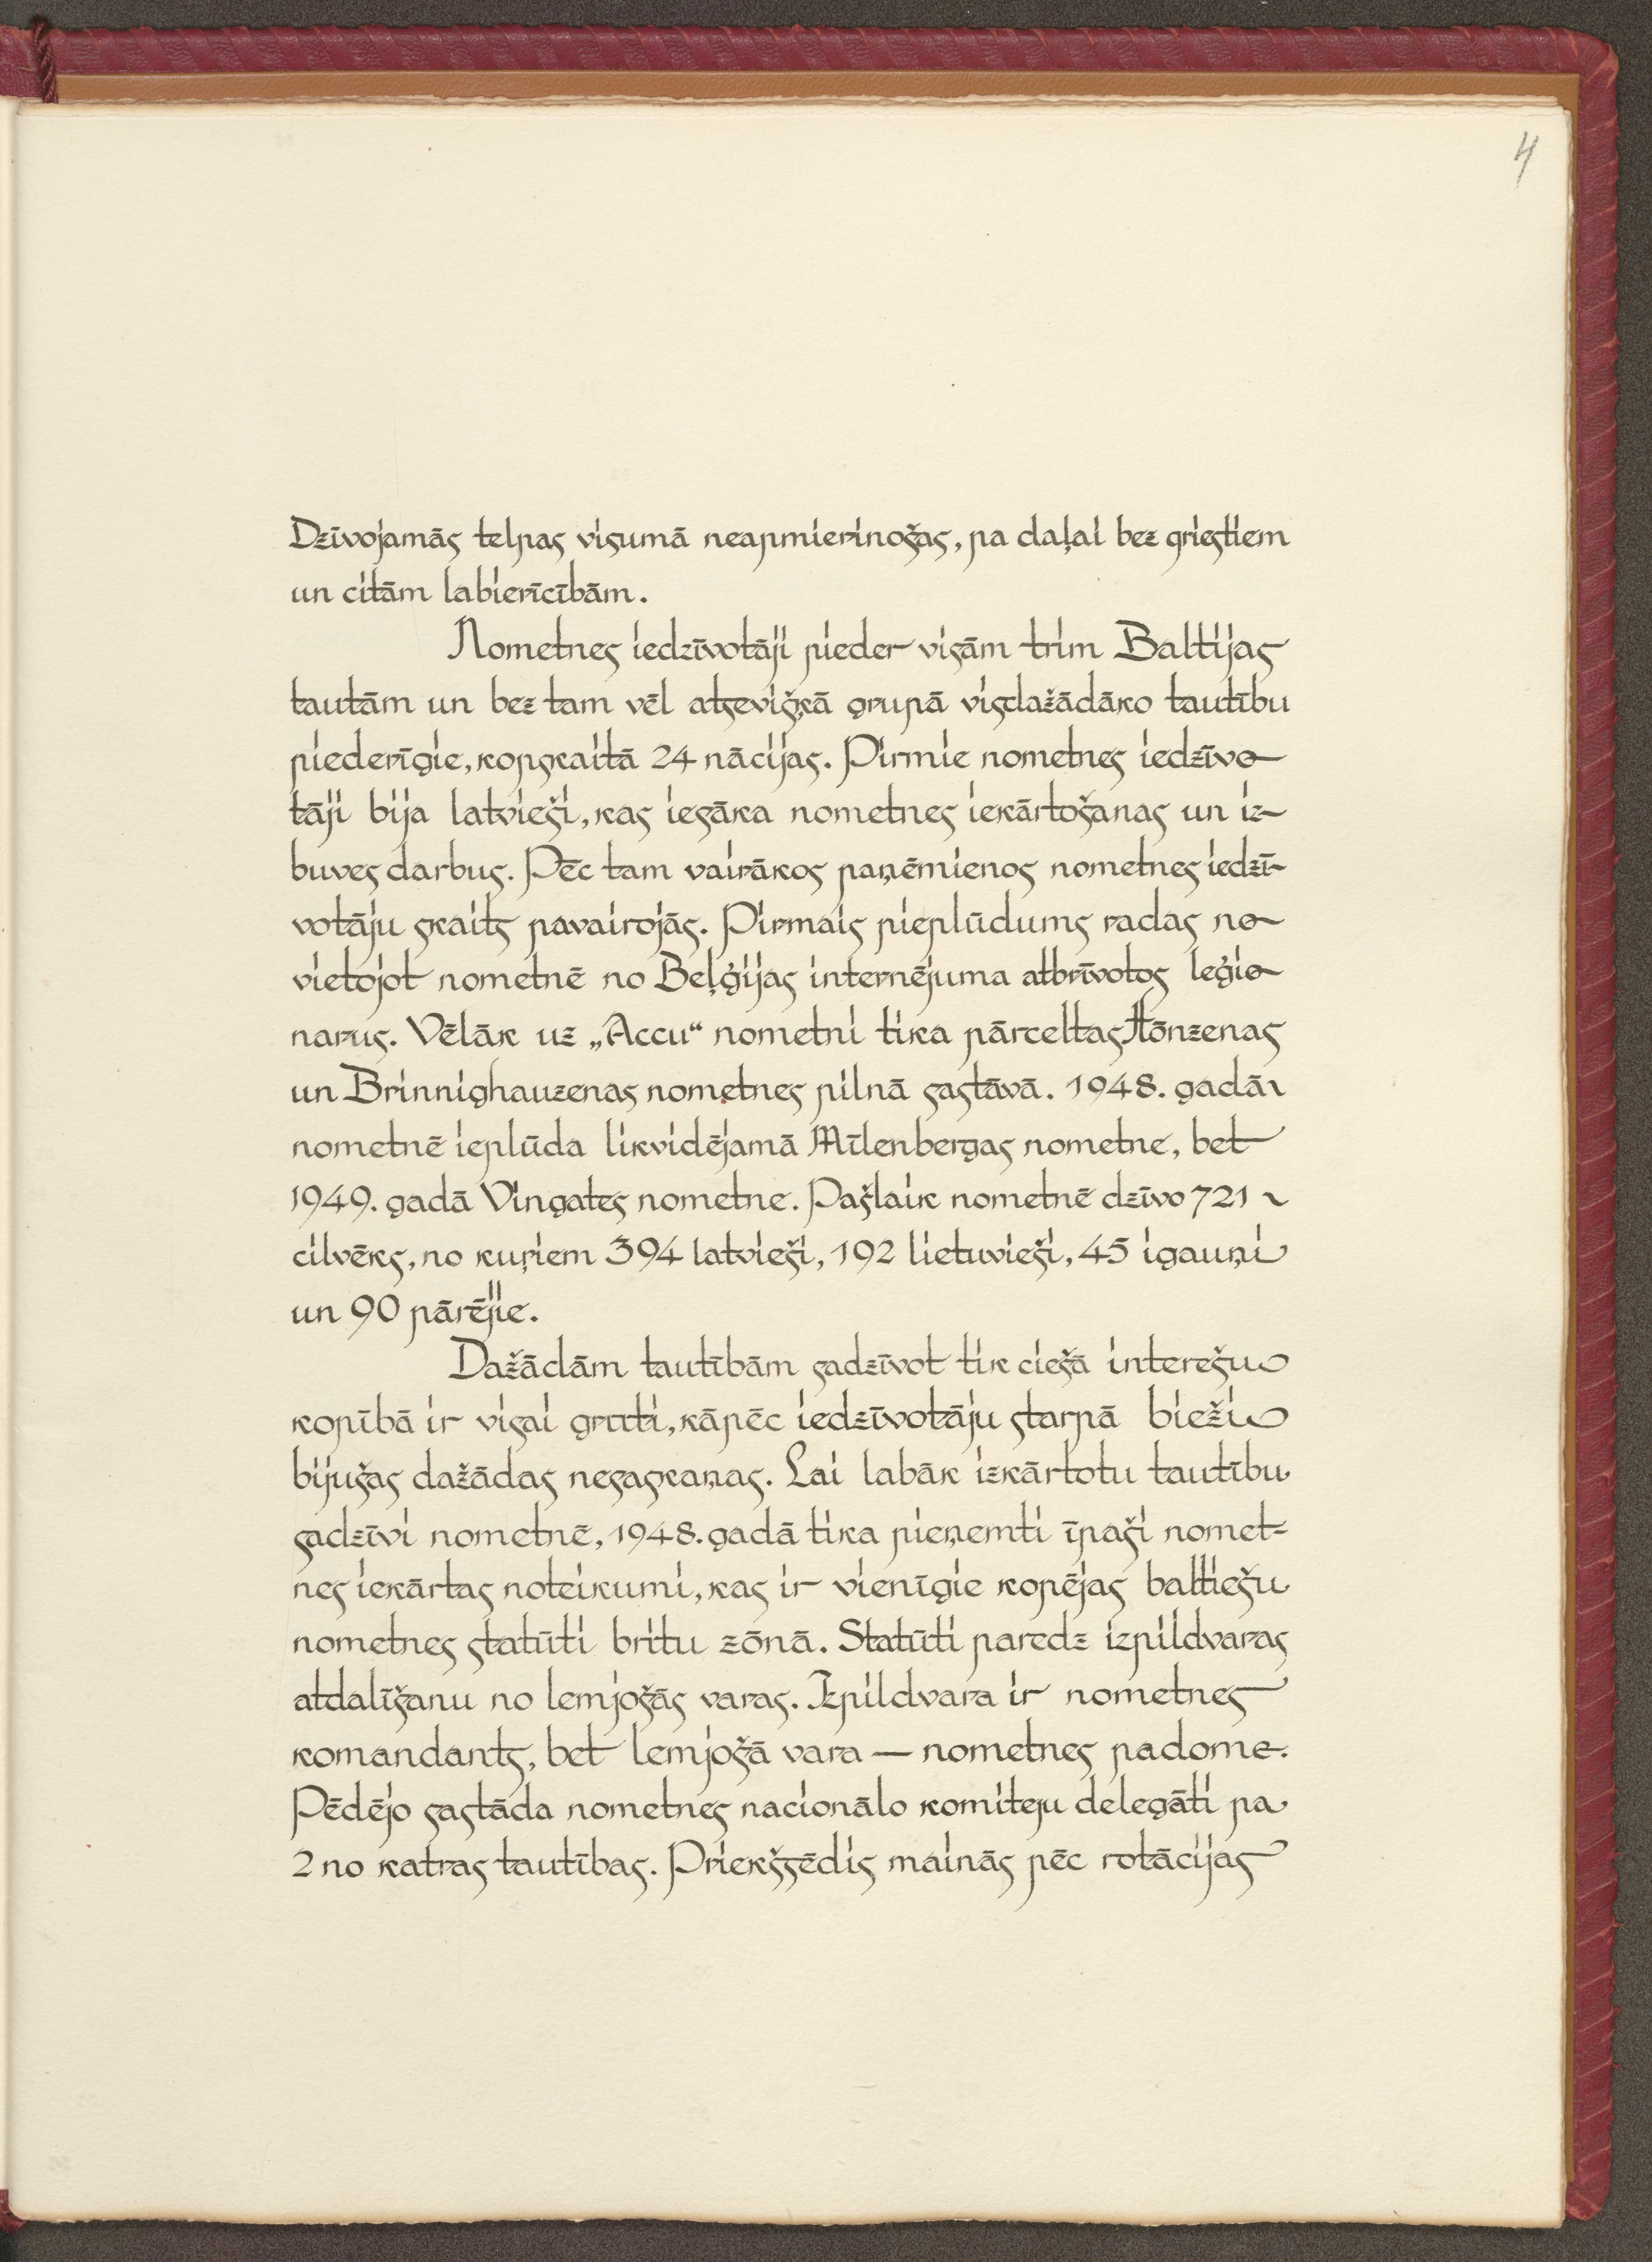 4
Dzīvojamās telpas visumā neapmierinošas, pa daļai bez griestiem
un citām labierīcībām.
Nometnes iedzīvotāji pieder visām trim Baltijas
tautām un bez tam vēl atsevišķā grupā visdažādāko tautību
piederīgie, kopskaitā 24 nācijas. Pirmie nometnes iedzīvo-
tāji bija latvieši, kas iesāka nometnes iekārtošanas un iz-
buves darbus. Pēc tam vairākos paņēmienos nometnes iedzī-
votāju skaits pavairojās. Pirmais pieplūdums radas no-
vietojot nometnē no Beļģijas internējuma atbrīvotos leģio-
narus. Vēlāk uz „Accu“ nometni tika pārceltas Hōnzenas
un Brinnighauzenas nometnes pilnā sastāvā. 1948. gadā
nometnē ieplūda likvidējamā Mīlenbergas nometne, bet
1949. gadā Vingates nometne. Pašlaik nometnē dzīvo 721
cilvēks, no kuŗiem 394 latvieši, 192 lietuvieši, 45 igauņi
un 90 pārējie.
Dažādām tautībām sadzīvot tik ciešā interešu
kopībā ir visai grūti, kāpēc iedzīvotāju starpā bieži
bijušas dažādas nesaskaņas. Lai labāk izkārtotu tautību
sadzīvi nometnē, 1948. gadā tika pieņemti īpaši nomet-
nes iekārtas noteikumi, kas ir vienīgie kopējas baltiešu
nometnes statūti britu zōnā. Statūti paredz izpildvaras
atdalīšanu no lemjošās varas. Izpildvara ir nometnes
komandants, bet lemjošā vara — nometnes padome.
Pēdējo sastāda nometnes nacionālo komiteju delegāti pa
2 no katras tautības. Priekšsēdis mainās pēc rotācijas